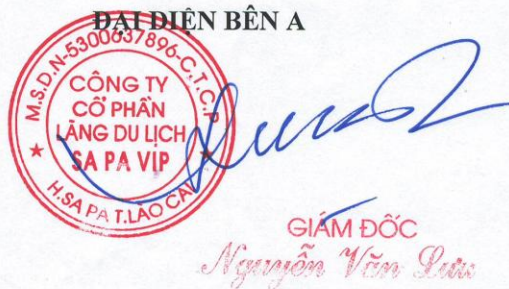 ĐẠI DIỆN BÊN A
M.S.D.N-5300637896-C.T.C.P
CÔNG TY
CỔ PHẦN
LÀNG DU LỊCH
SA PA VIP
H.SA PA T.LÀO CAI
GIÁM ĐỐC
Nguyễn Văn Lưu